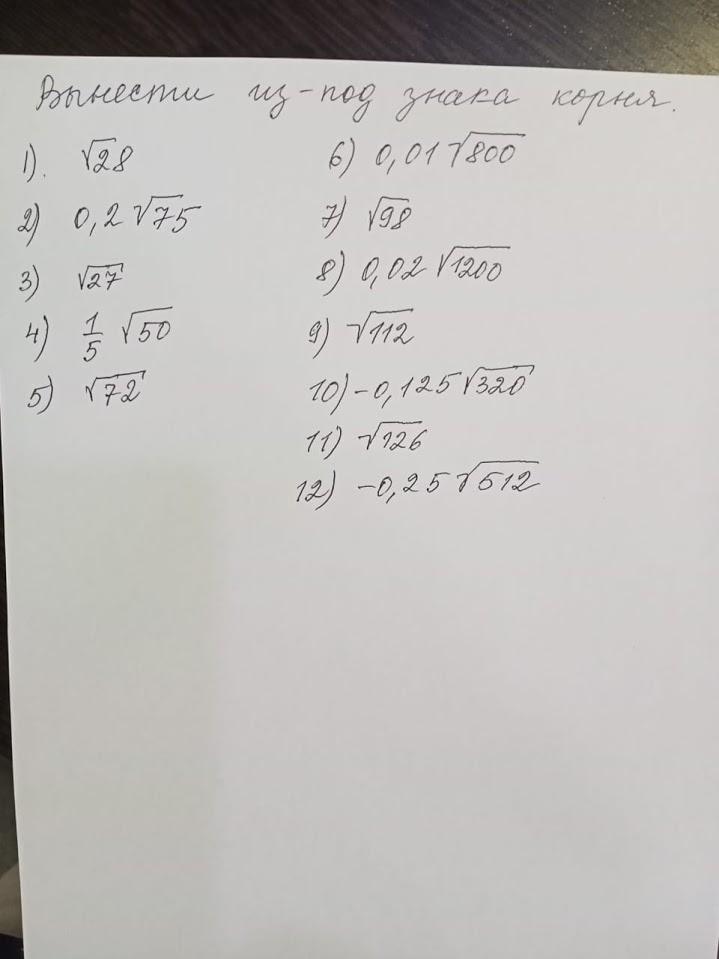 Вынести из-под знака корня.
1). √28
2) 0,2√75
3) √27
4) 1/5 √50
5) √72
6) 0,01√800
7) √98
8) 0,02√1200
9) √112
10) -0,125√320
11) √126
12) -0,25√512